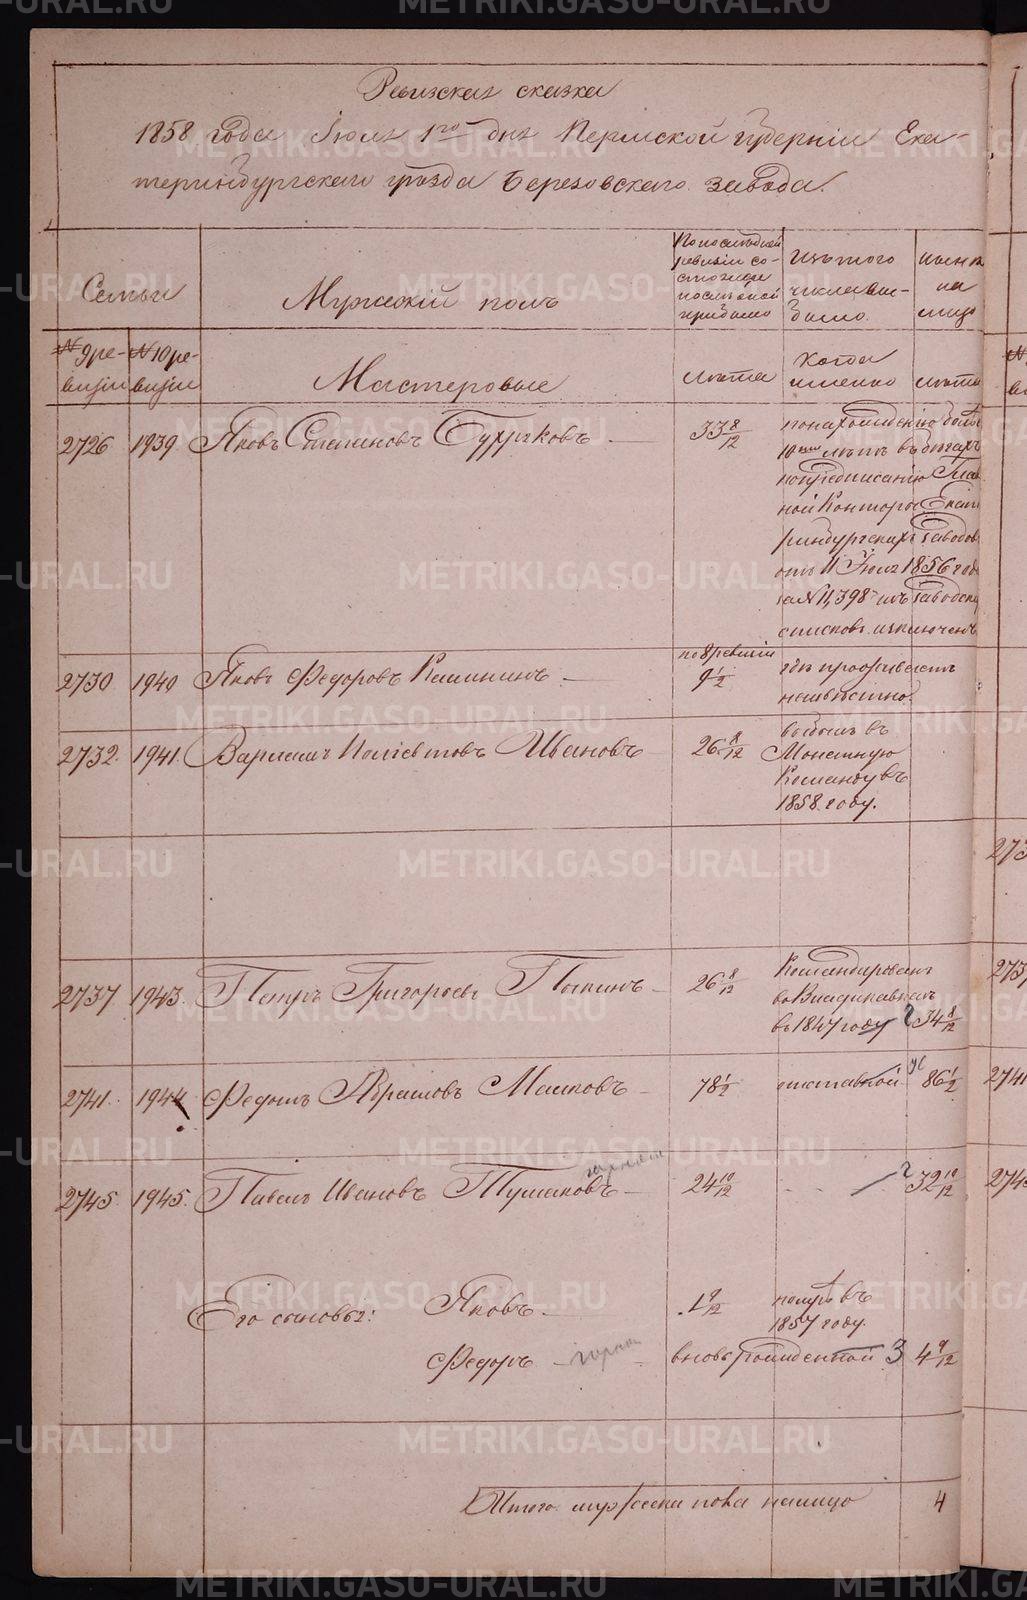 Ревизская сказка
1858 года Июля 1го дня Пермской губерніи Ека-
теринбургскаго уѣзда Березовскаго завода.
Семьи
Мужескій полъ
По послѣдней
ревизіи со-
стояло и
послѣ оной
прибыло
Изъ того
числа вы-
было.
нынѣ
на
лицо
№ 9 ре-
визіи
№ 10 ре-
визіи
Мастеровые
лѣта
Когда
именно
лѣта
2726 1939 Яковъ Степановъ 33 8/12
по нахожденію болѣе
10 лѣтъ въ бѣгахъ
по предписанію Глав
ной Конторы Екате
ринбургскихъ Заводовъ
отъ 11 Іюля 1856 года
за № 11,398 изъ Заводскихъ
списковъ исключенъ
2730 1940 Яковъ Федоровъ Калининъ по 8 ревизіи 9 1/2
гдѣ проживаетъ
неизвѣстно.
2732. 1941. Варламъ Иванов 26 8/12
выбылъ въ
Монетную
Команду въ
1858 году.
2737 1943. Петръ Григорьевъ 26 8/12
Командированъ
въ Владикавказъ
въ 1847 году 34 8/12
2741. 1944 Абрамовъ Машковъ 78 1/2 отставной 86 1/2
2745. 1945. Павелъ Ивановъ Тумаковъ 24 10/12 32 10/12
Его сыновья: Яковъ 1 9/12 померъ въ
1857 году.
Федоръ вновь рожденной 3 4 9/12
Итого мужеска пола налицо 4
METRIKI.GASO-URAL.RU